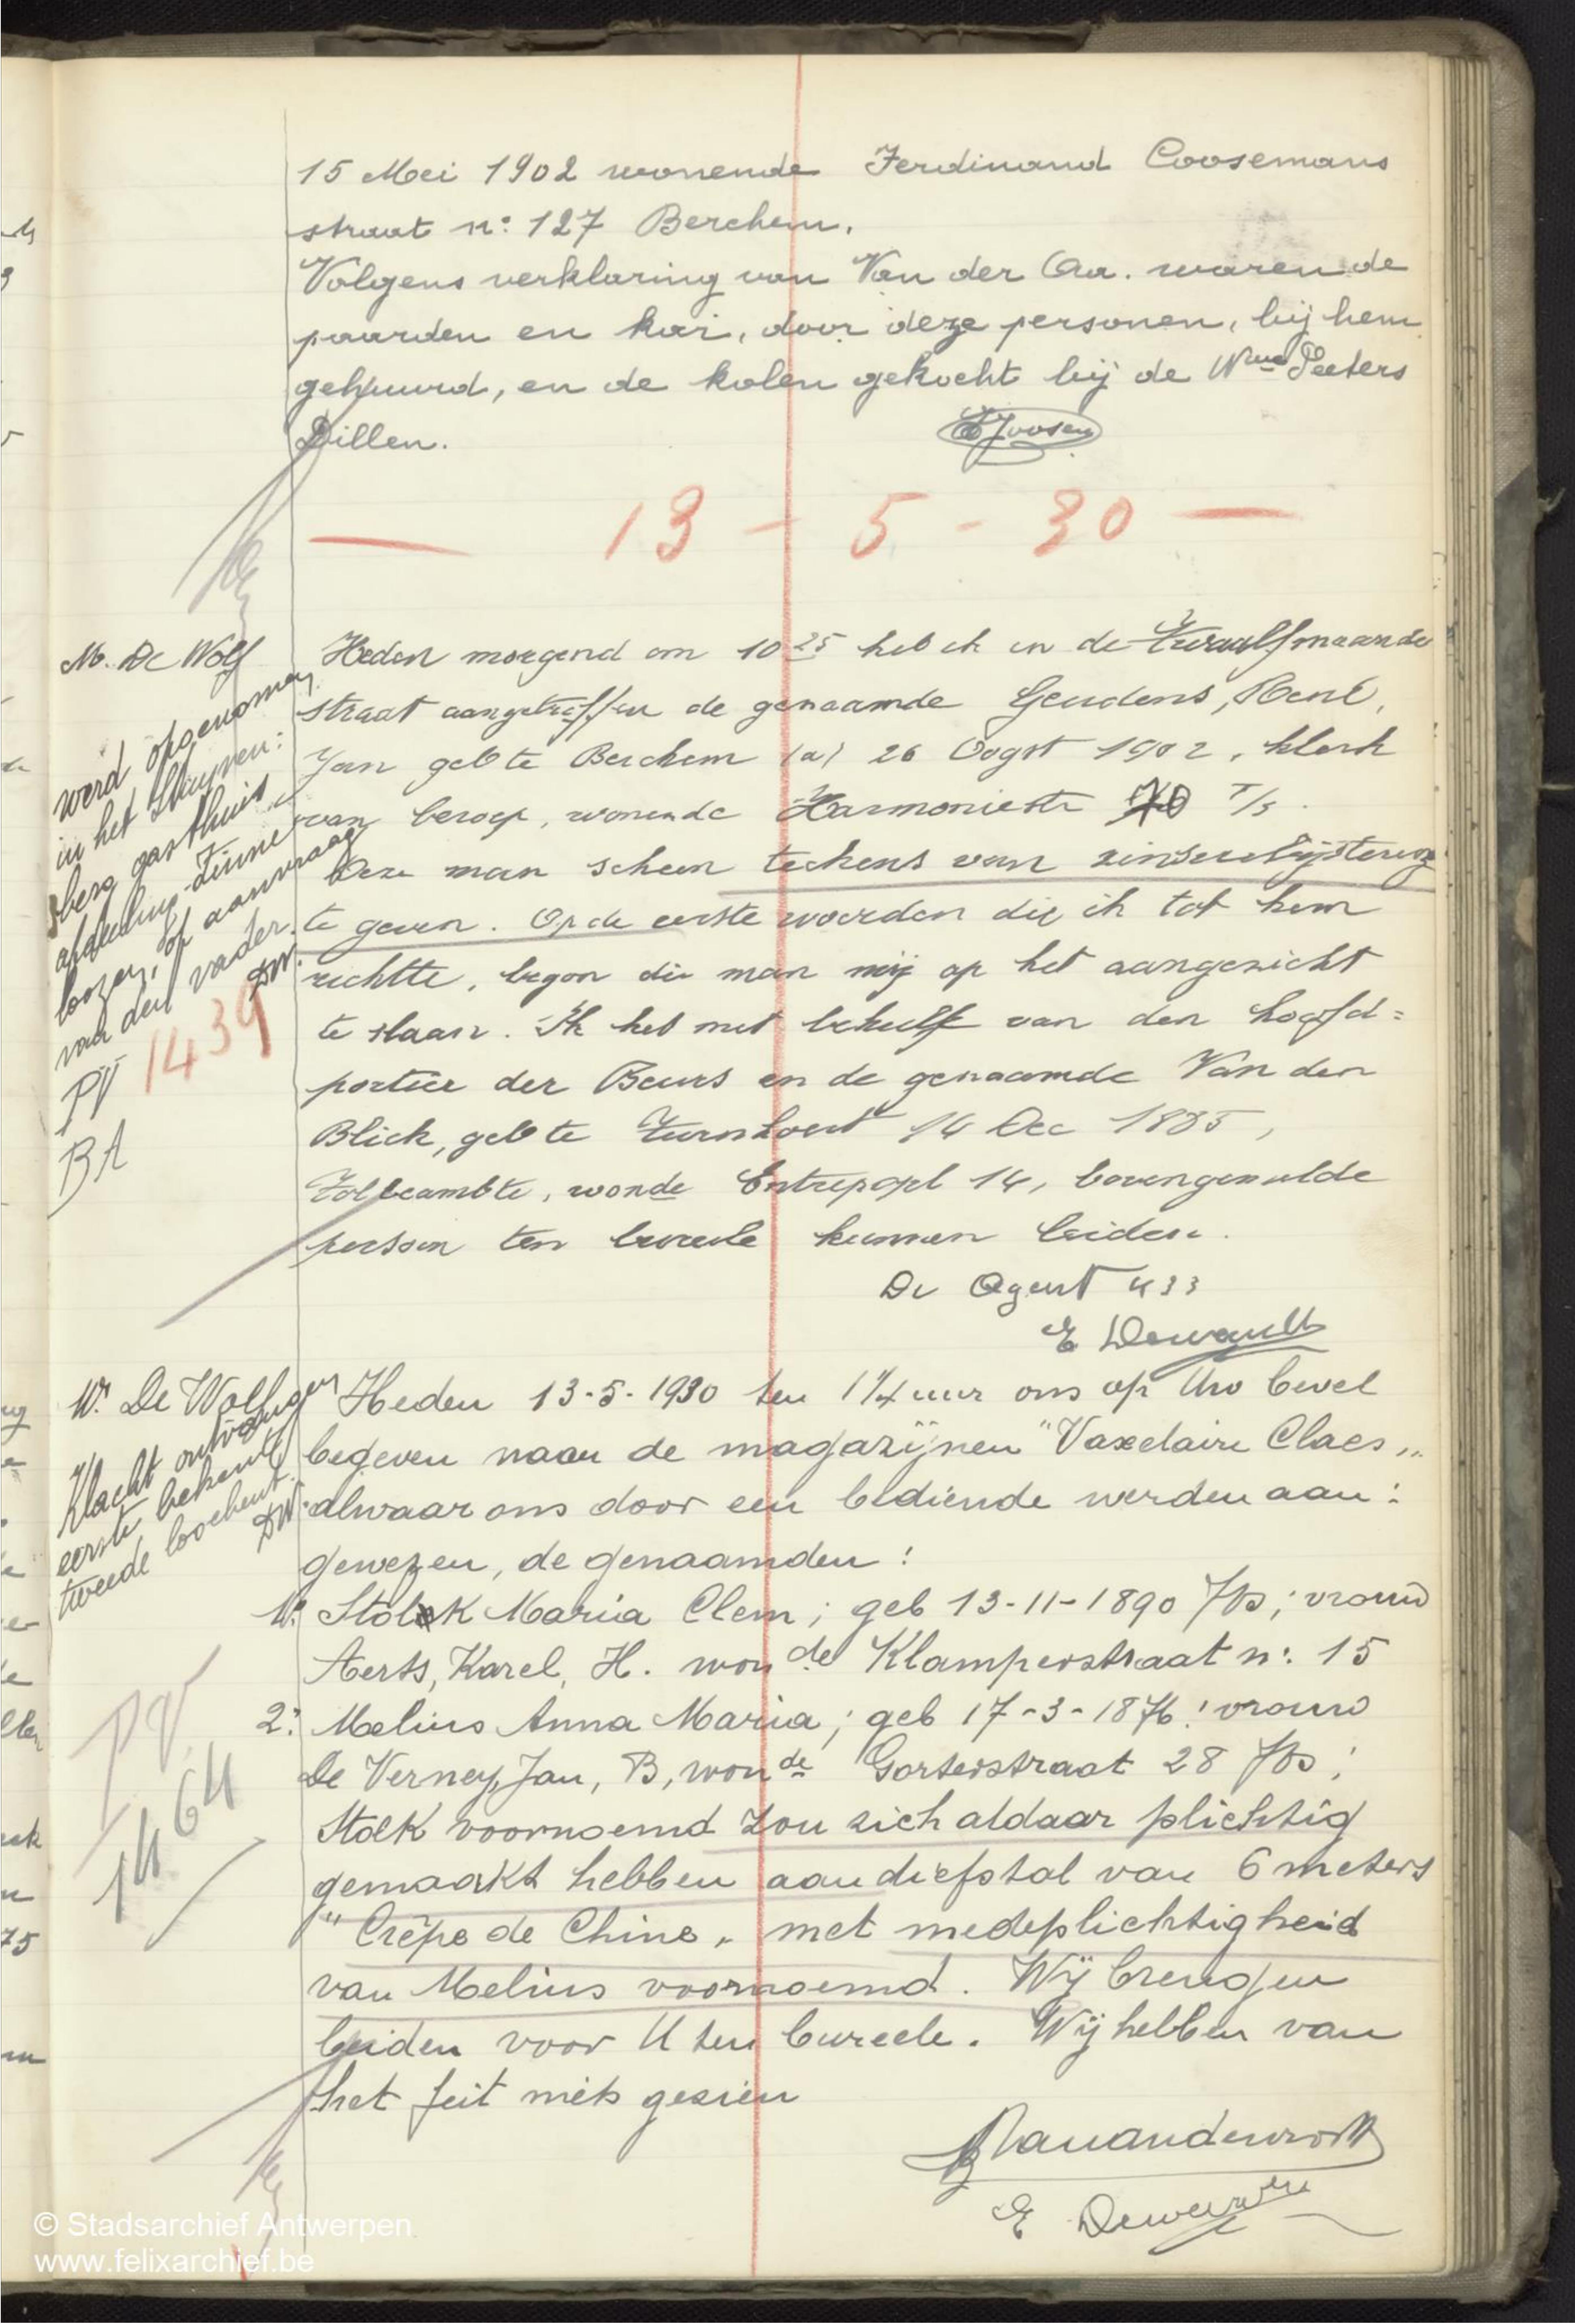 15 Mei 1902 wonende Ferdinand Coosemans
straat n: 127 Berchem.
Volgens verklaring van Van der Aa. waren de
paarden en kar, door deze personen, bij hem
gehuurd, en de kolen gekocht bij de Wwe Peeters
Dillen.
Joosen
— 13 - 5 - 30 —
M. De Wolf
werd opgenomen
in het Stuyven:
berg gasthuis
afdeeling Zinne
loozen, op aanvraag
van den vader.
DW.
PV 1439
BA
Heden morgend om 10 25 heb ik in de Twaalfmaanden
straat aangetroffen de genaamde Geudens, René,
Jan geb te Berchem (a) 26 Oogst 1902, klerk
van beroep, wonende Harmoniestr 70 T/s.
Deze man scheen teekens van zinsverbijstering
te geven. Op de eerste woorden die ik tot hem
richtte, begon die man mij op het aangezicht
te slaan. Ik heb met behulp van den hoofd=
portier der Beurs en de genaamde Van den
Blick, geb te Turnhout 14 Dec 1885,
Tolbeambte, wonde Entrepopl 14, bovengemelde
persoon ten bureele kunnen leiden.
De Agent 433
W. De Wolf
Klacht ontvangen
eerste bekent
tweede loochent.
DW.
Heden 13-5-1930 ten 1 1/4 uur ons op Uw bevel
begeven naar de magazijnen "Vaxelaire Claes„
alwaar ons door een bediende werden aan:
gewezen, de genaamden:
1: Stolk Maria Clem; geb 13-11-1890 /bo; vrouw
Aerts, Karel, H. won de Klamperstraat n: 15
2: Melius Anna Maria; geb 17-3-1876! vrouw
De Verney, Jan, B, won de Gorterstraat 28 /bo;
Stolk voornoemd zou zich aldaar plichtig
gemaakt hebben aan diefstal van 6 meters
"Crêpe de Chine„ met medeplichtigheid
van Melius voornoemd. Wij brengen
beiden voor U ten bureele. Wij hebben van
het feit niets gezien
PV.
1464
© Stadsarchief Antwerpen
www.felixarchief.be